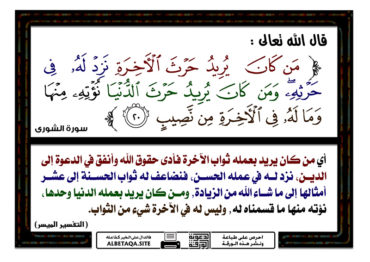 قال الله تعالى :
﴿ مَن كَانَ يُرِيدُ حَرْثَ ٱلْأٓخِرَةِ نَزِدْ لَهُۥ فِى
حَرْثِهِۦ وَمَن كَانَ يُرِيدُ حَرْثَ ٱلدُّنْيَا نُؤْتِهِۦ مِنْهَا
وَمَا لَهُۥ فِى ٱلْأٓخِرَةِ مِن نَّصِيبٍ ٢٠ ﴾ سورة الشورى
أي من كان يريد بعمله ثواب الآخرة فأدى حقوق الله وأنفق في الدعوة إلى
الدين، نزد لـه في عمله الحسن، فنضاعف له ثواب الحسنة إلى عشر
أمثالها إلى ما شاء الله من الزيادة، ومـن كان يريد بعمله الدنيا وحدها،
نؤته منها ما قسمناه له، وليس له في الآخرة شيء من الثواب.
( التفسير الميسر )
احرص على طباعة
ونشر هذه الورقة
فالدال على الخير كفاعله
ALBETAQA.SITE